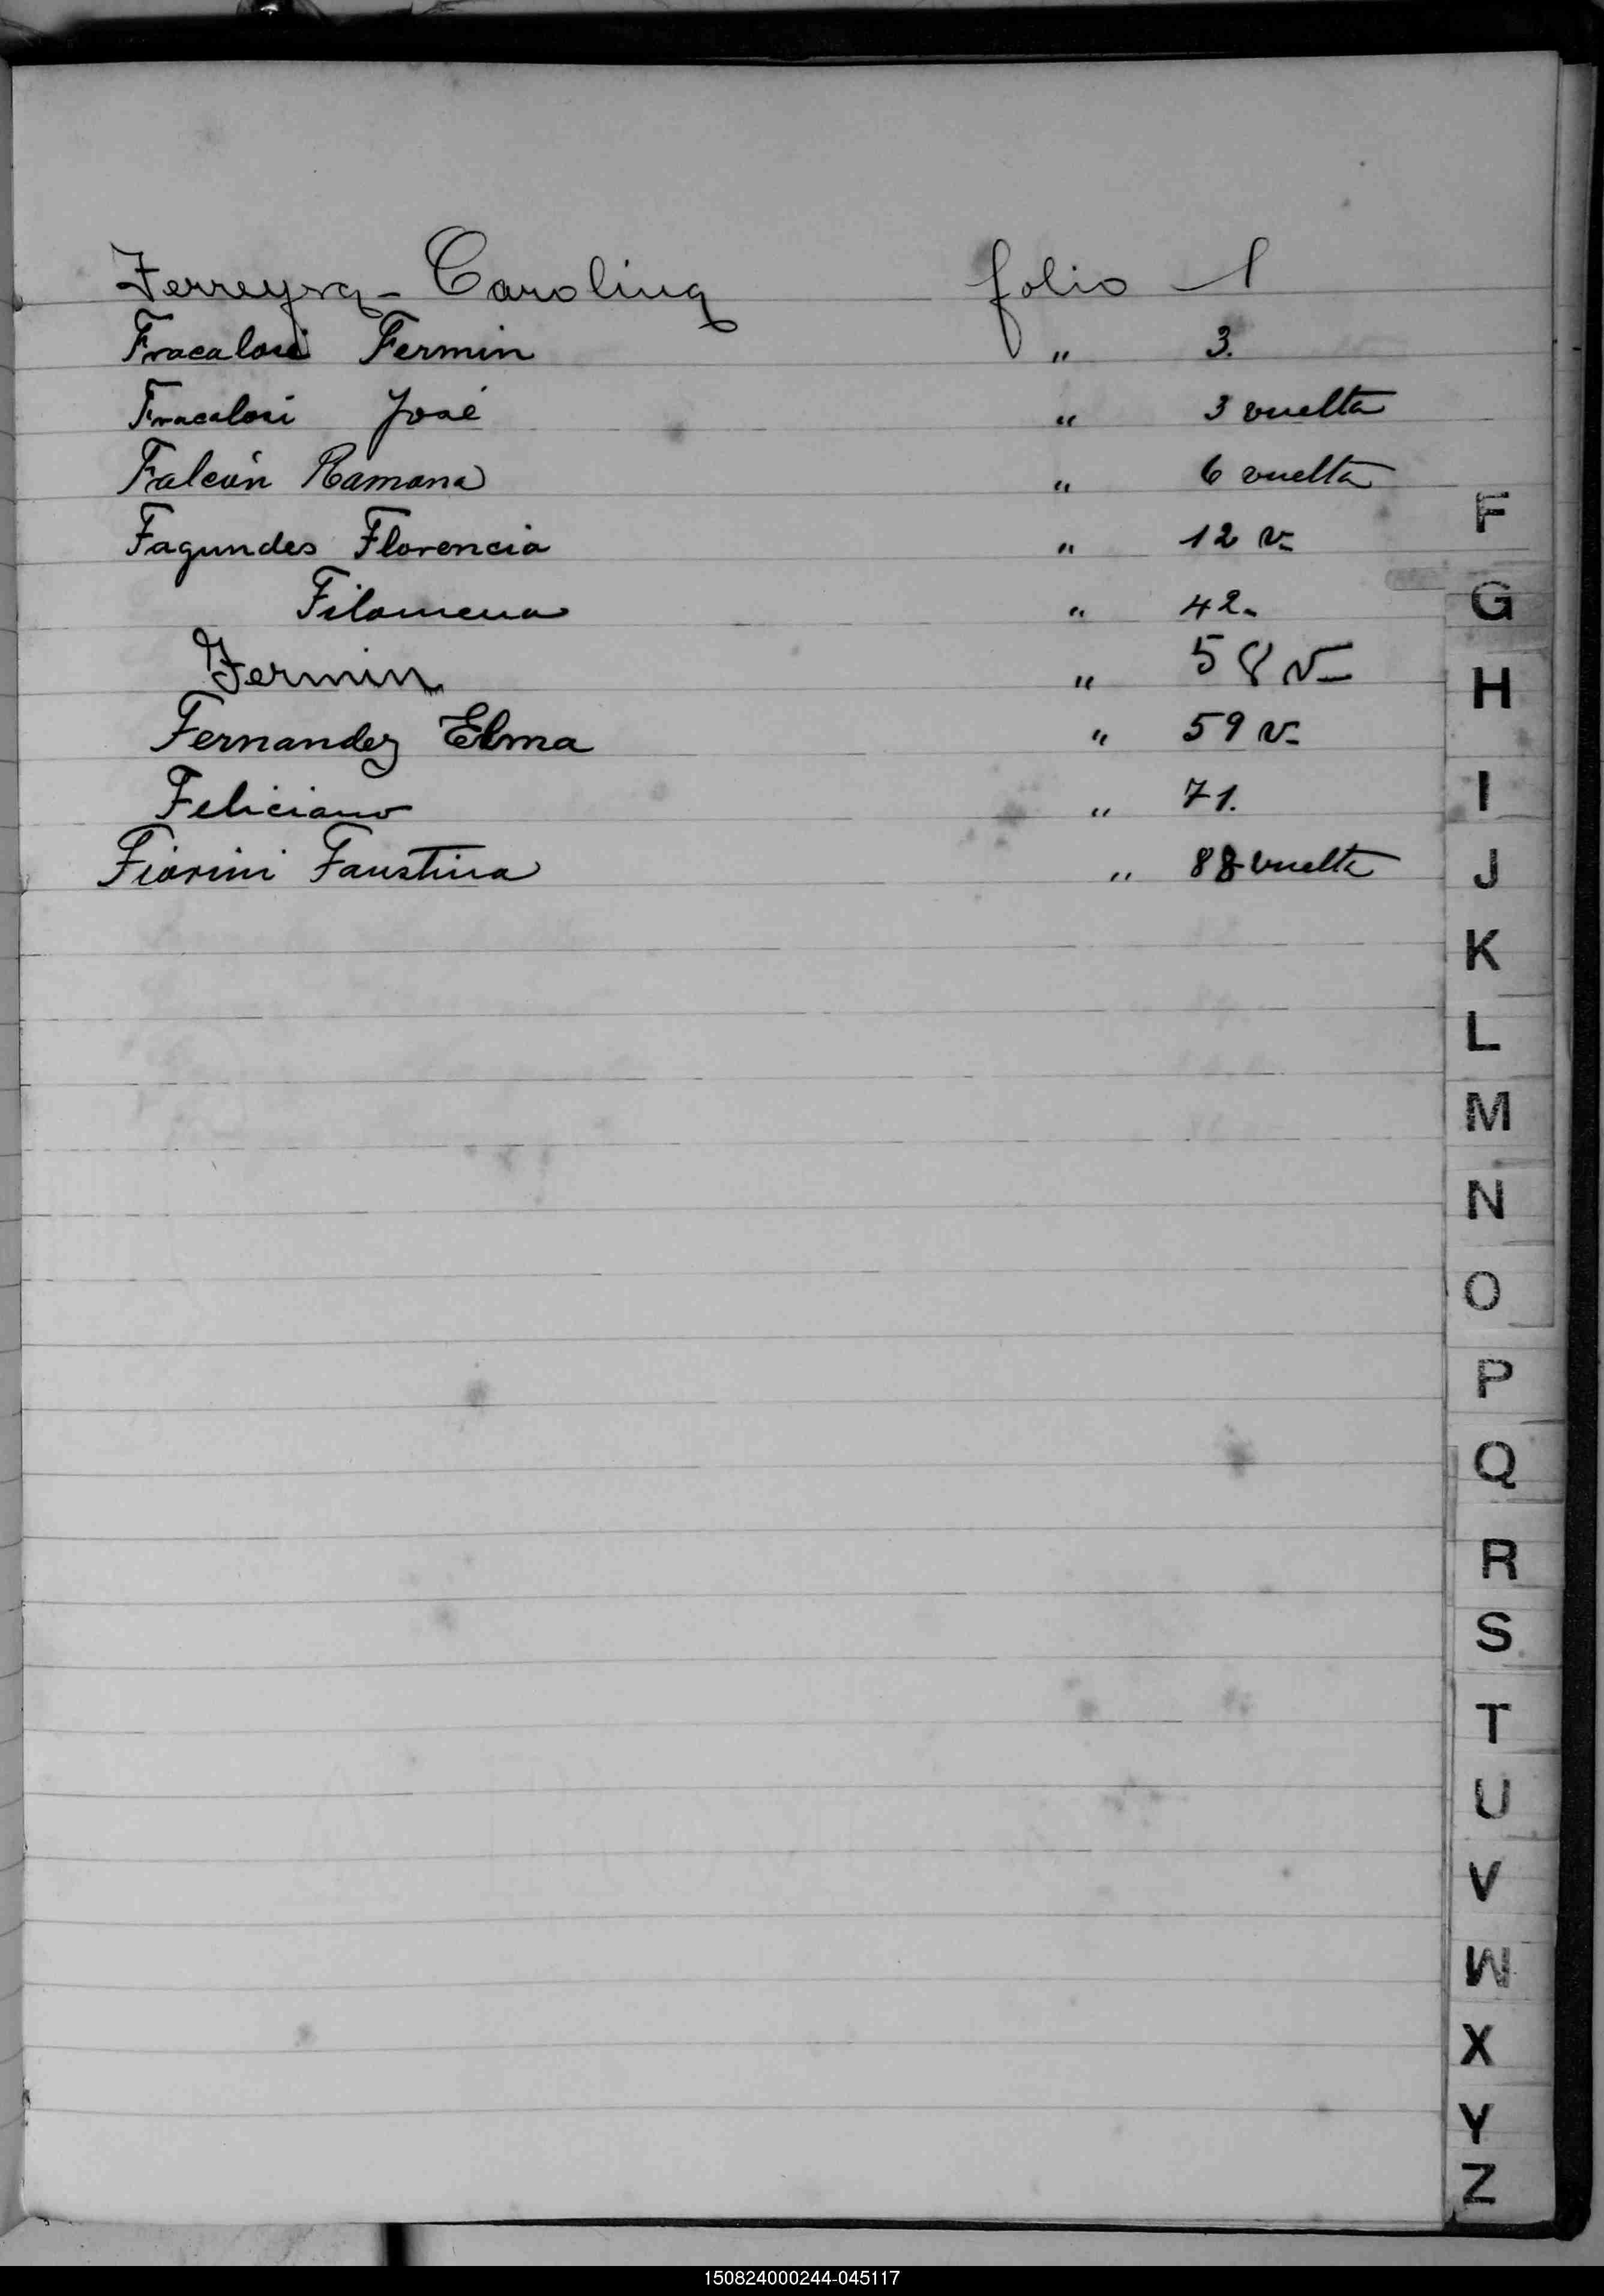 Ferreyra - Carolina folio 1
Fracalosi Fermin " 3.
Fracalosi José " 3 vuelta
Falcón Ramona " 6 vuelta
Fagundes Florencia " 12 v-
Filomena " 42-
Fermin " 58 v-
Fernandez Elma " 59 v-
Feliciano " 71.
Fiorini Faustina " 88 vuelta
F
G
H
I
J
K
L
M
N
O
P
Q
R
S
T
U
V
W
X
Y
Z
150824000244-045117